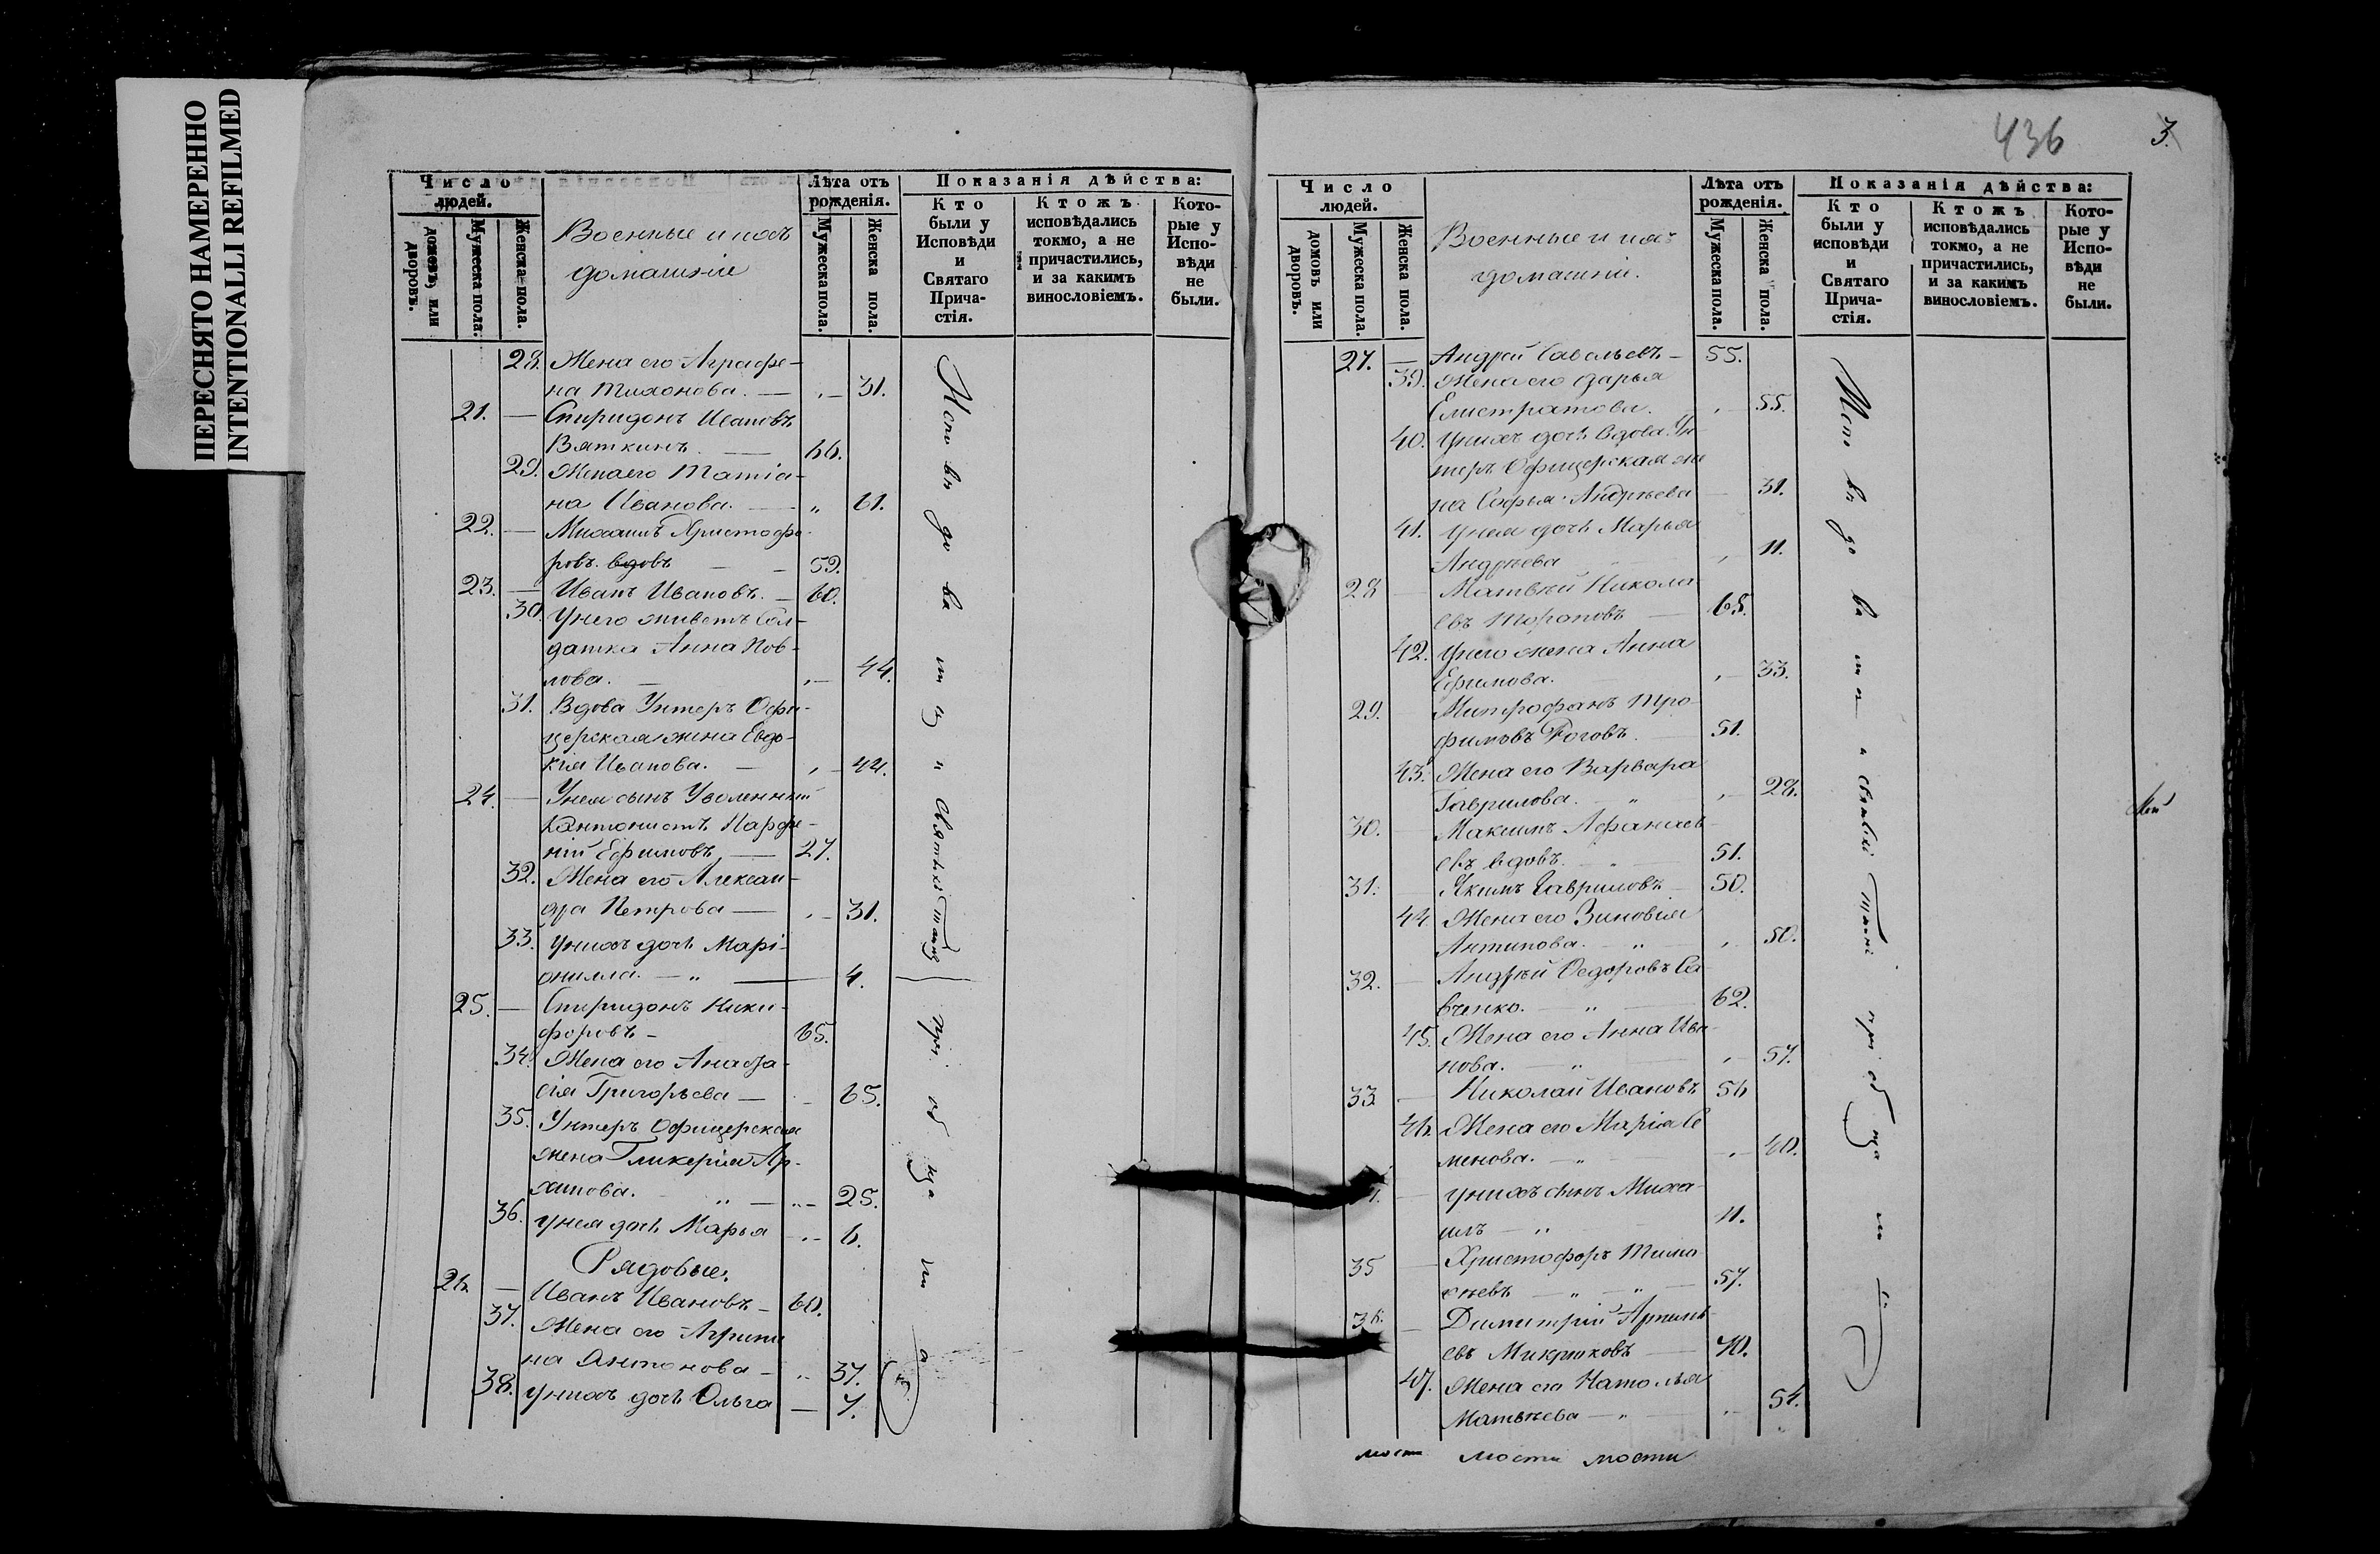 ПЕРЕСНЯТО НАМЕРЕННО
INTENTIONALLI REFILMED
Число людей.
домовъ, или дворовъ.
Мужеска пола.
Женска пола.
Военные и ихъ
домашніе
Лѣта отъ рожденія.
Мужеска пола.
Женска пола.
Показанія дѣйства:
Кто были у Исповѣди и Святаго Прича-стія.
Ктожъ исповѣдались токмо, а не причастились, и за какимъ винословіемъ.
Кото-рые у Испо-вѣди не были.
28. Жена его Аграфе-
на Тихонова. — „ — 31.
21. — Спиридонъ Ивановъ
Вяткинъ. — 66.
29. Жена его Татіа-
на Иванова. — „ 61.
22. — Михаилъ Христофо-
ровъ вдовъ — — 59.
23. — Иванъ Ивановъ. — 60.
30. У него живетъ Сол-
датка Анна Пов-
лова. — „ — 44.
31. Вдова Унтеръ Офи-
церская жена Евдо-
кія Иванова. — „ — 44.
24. — У нея сынъ Уволенный
Кантонистъ Парфе-
ній Ефимовъ — 27.
32. Жена его Алексан-
дра Петрова — „ — 31.
33. У нихъ дочь Марі-
онилла. — „ — 4.
25. — Спиридонъ Ники-
форовъ — 65.
34. Жена его Анаста-
сія Григорьева — — 65.
35. Унтеръ Офицерская
жена Гликерія Ар-
хипова. „ — „ — 25.
36. У нея дочь Марья — „ — 6.
Рядовые.
26. — Иванъ Ивановъ — 60.
37. Жена его Агрипи
на Антонова — „ 37.
38. У нихъ дочь Ольга — 7.
Исповѣдовашись и Святыхъ Таинъ пріобщашася
436
3.
Число людей.
домовъ или дворовъ.
Мужеска пола.
Женска пола.
Военные и ихъ
домашніе.
Лѣта отъ рожденія.
Мужеска пола.
Женска пола.
Показанія дѣйства:
Кто были у исповѣди и Святаго Прича-стія.
Ктожъ исповѣдались токмо, а не причастились, и за какимъ винословіемъ.
Кото-рые у Испо-вѣди не были.
27. — Андрей Савельевъ — 55.
39. Жена его Дарья
Елистратова. „ — 55.
40. У нихъ дочь вдова Ун-
теръ Офицерская же
на Софья Андреева — 31.
41. У нея дочь Марья
Андреева „ 11.
28 — Матвѣй Никола
евъ Тораповъ — 65.
42. У него жена Анна
Ефимова. „ — 33.
29. — Митрофанъ Тро-
фимовъ Роговъ. — 51.
43. Жена его Варвара
Гаврилова. — „ „ — 28.
30. — Максимъ Афанась-
евъ вдовъ. — „ — 51.
31. — Якимъ Гавриловъ — 50.
44. Жена его Зиновія
Антипова. — „ — „ — 50.
32. — Андрѣй Ѳедоровъ Са-
вченко. — „ — 62.
45. Жена его Анна Ива-
нова. — „ — „ — 57.
33 — Николай Ивановъ 56
46. Жена его Марія Се
менова. — „ — „ — 40.
— У нихъ сынъ Миха-
илъ — „ 11.
35 — Христофоръ Тимо
ѳеевъ — „ — „ — 57.
36. — Димитрій Артемь-
евъ Микрюковъ — 70.
47. Жена его Наталья
Матвѣева — „ — „ — 54.
Исповѣдовашась и святыхъ Таинъ пріобщаш
мости мости